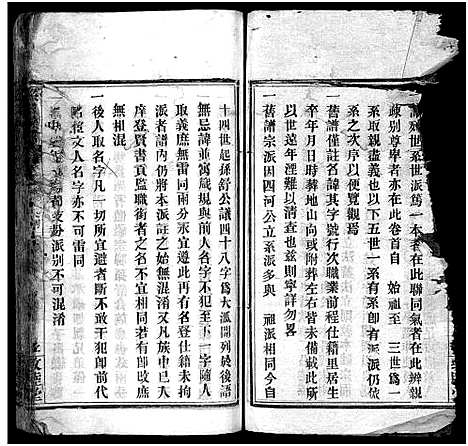 一譜從世系世派篤一本者在此聯同氣者在此辨親
疎别尊卑者亦在此卷首自 始祖至 三世爲一
系取親盡義也以下五世一系有系則有派仍依
系之次序以便覽觀焉
一舊譜僅註名諱其字號行次職業前程仕籍里居
卒年月日時葬地山向或附葬左右皆未備載此則
以世遠年湮難以清查也兹則寧詳勿畧
一舊譜宗派因四河公立系派多與 祖派相同今自
十四世起孫舒公議四十八字爲大派開列於後語
無忌諱並寓箴規與前人名字不犯至下一字隨人
取義庶無雷同兩分永宜遵守再有名登仕籍未拘
派者譜內於本派註之始無混淆又凡族中已入
庠登賢書貢監職銜者之名不宜相同若有即改庶
無相混
一後人取名字凡一切宜避者斷不敢干犯即前代
名佞文人名字亦不宜同
支分派别不可混淆